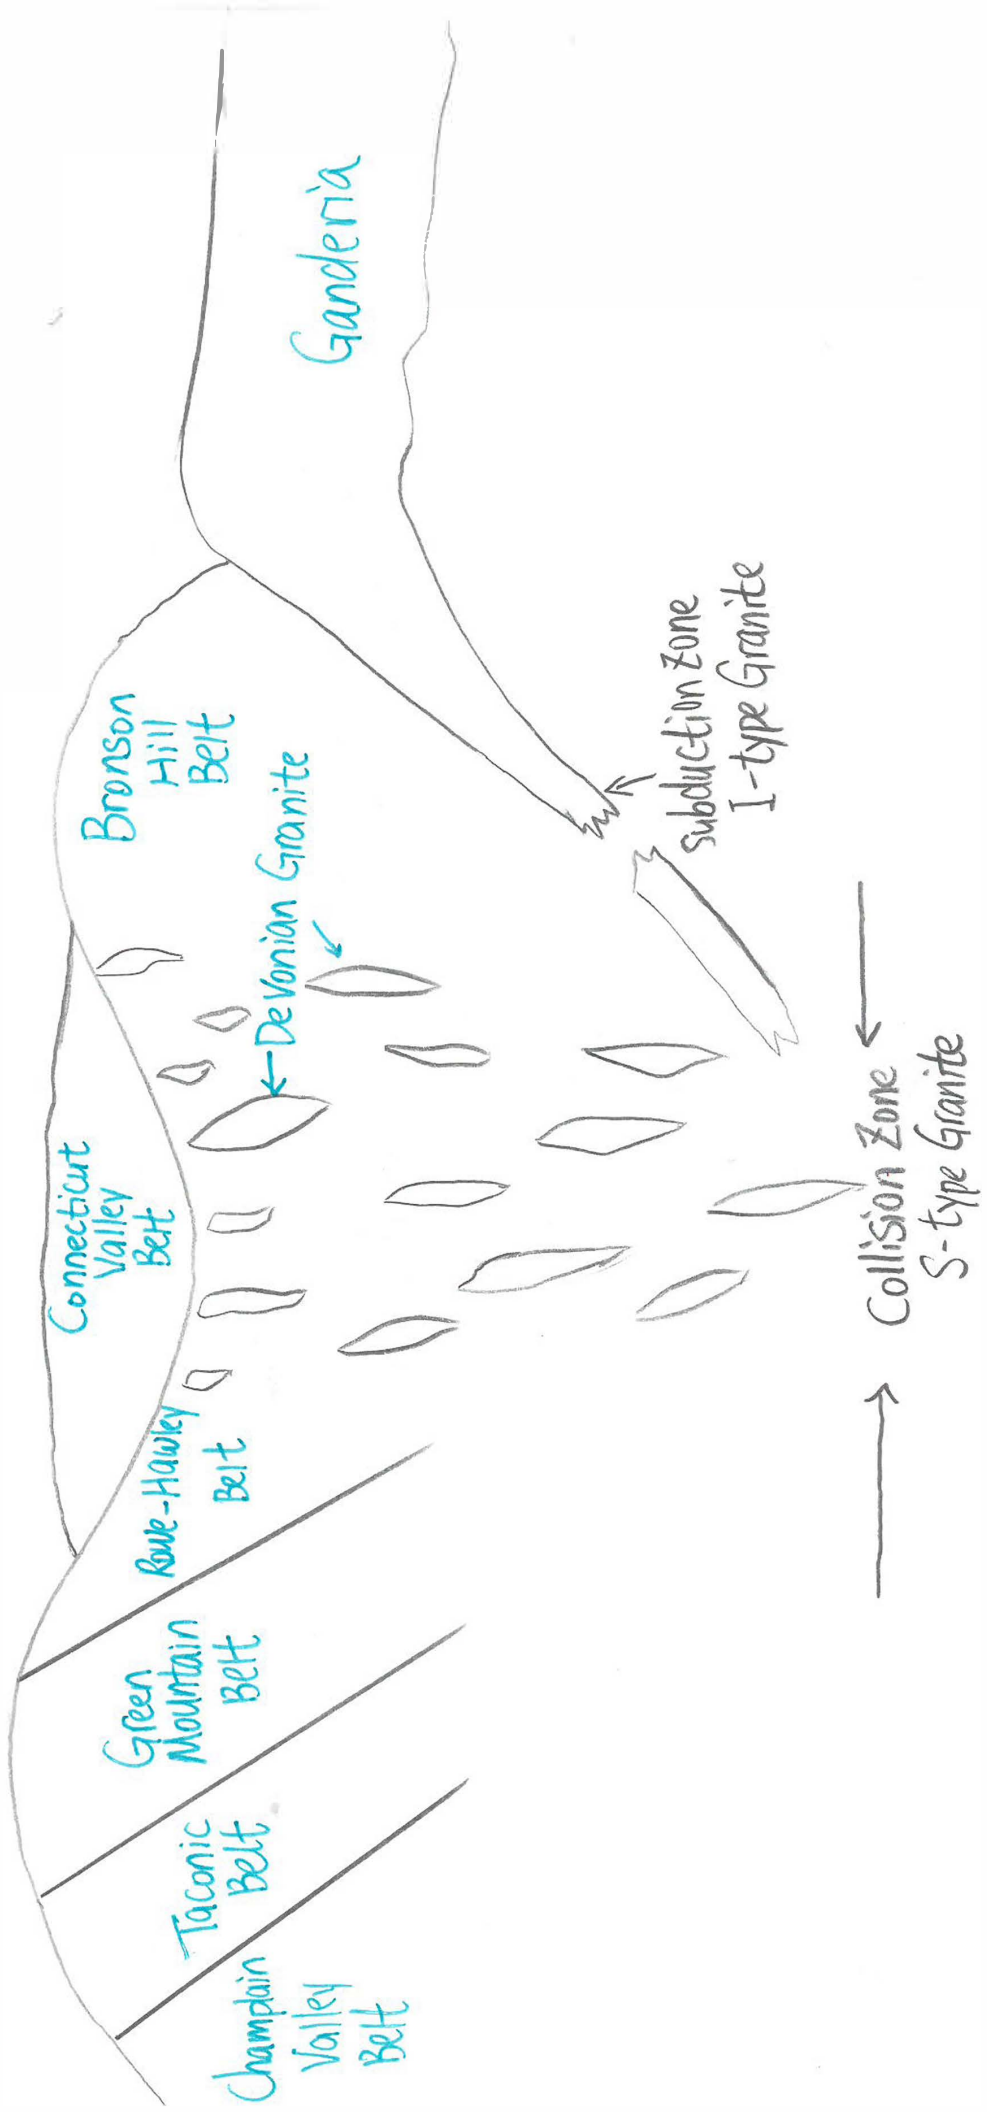 Champlain
Valley
Belt
Taconic
Belt
Green
Mountain
Belt
Rowe-Hawley
Belt
Connecticut
Valley
Belt
Devonian Granite
Bronson
Hill
Belt
Ganderia
Subduction Zone
I-type Granite
Collision Zone
S-type Granite